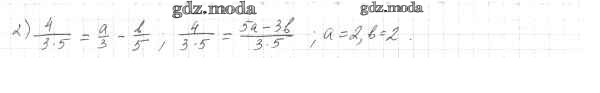 gdz.moda gdz.moda
2) 4/(3·5) = a/3 - b/5 ; 4/(3·5) = (5a-3b)/(3·5) ; a=2, b=2 .